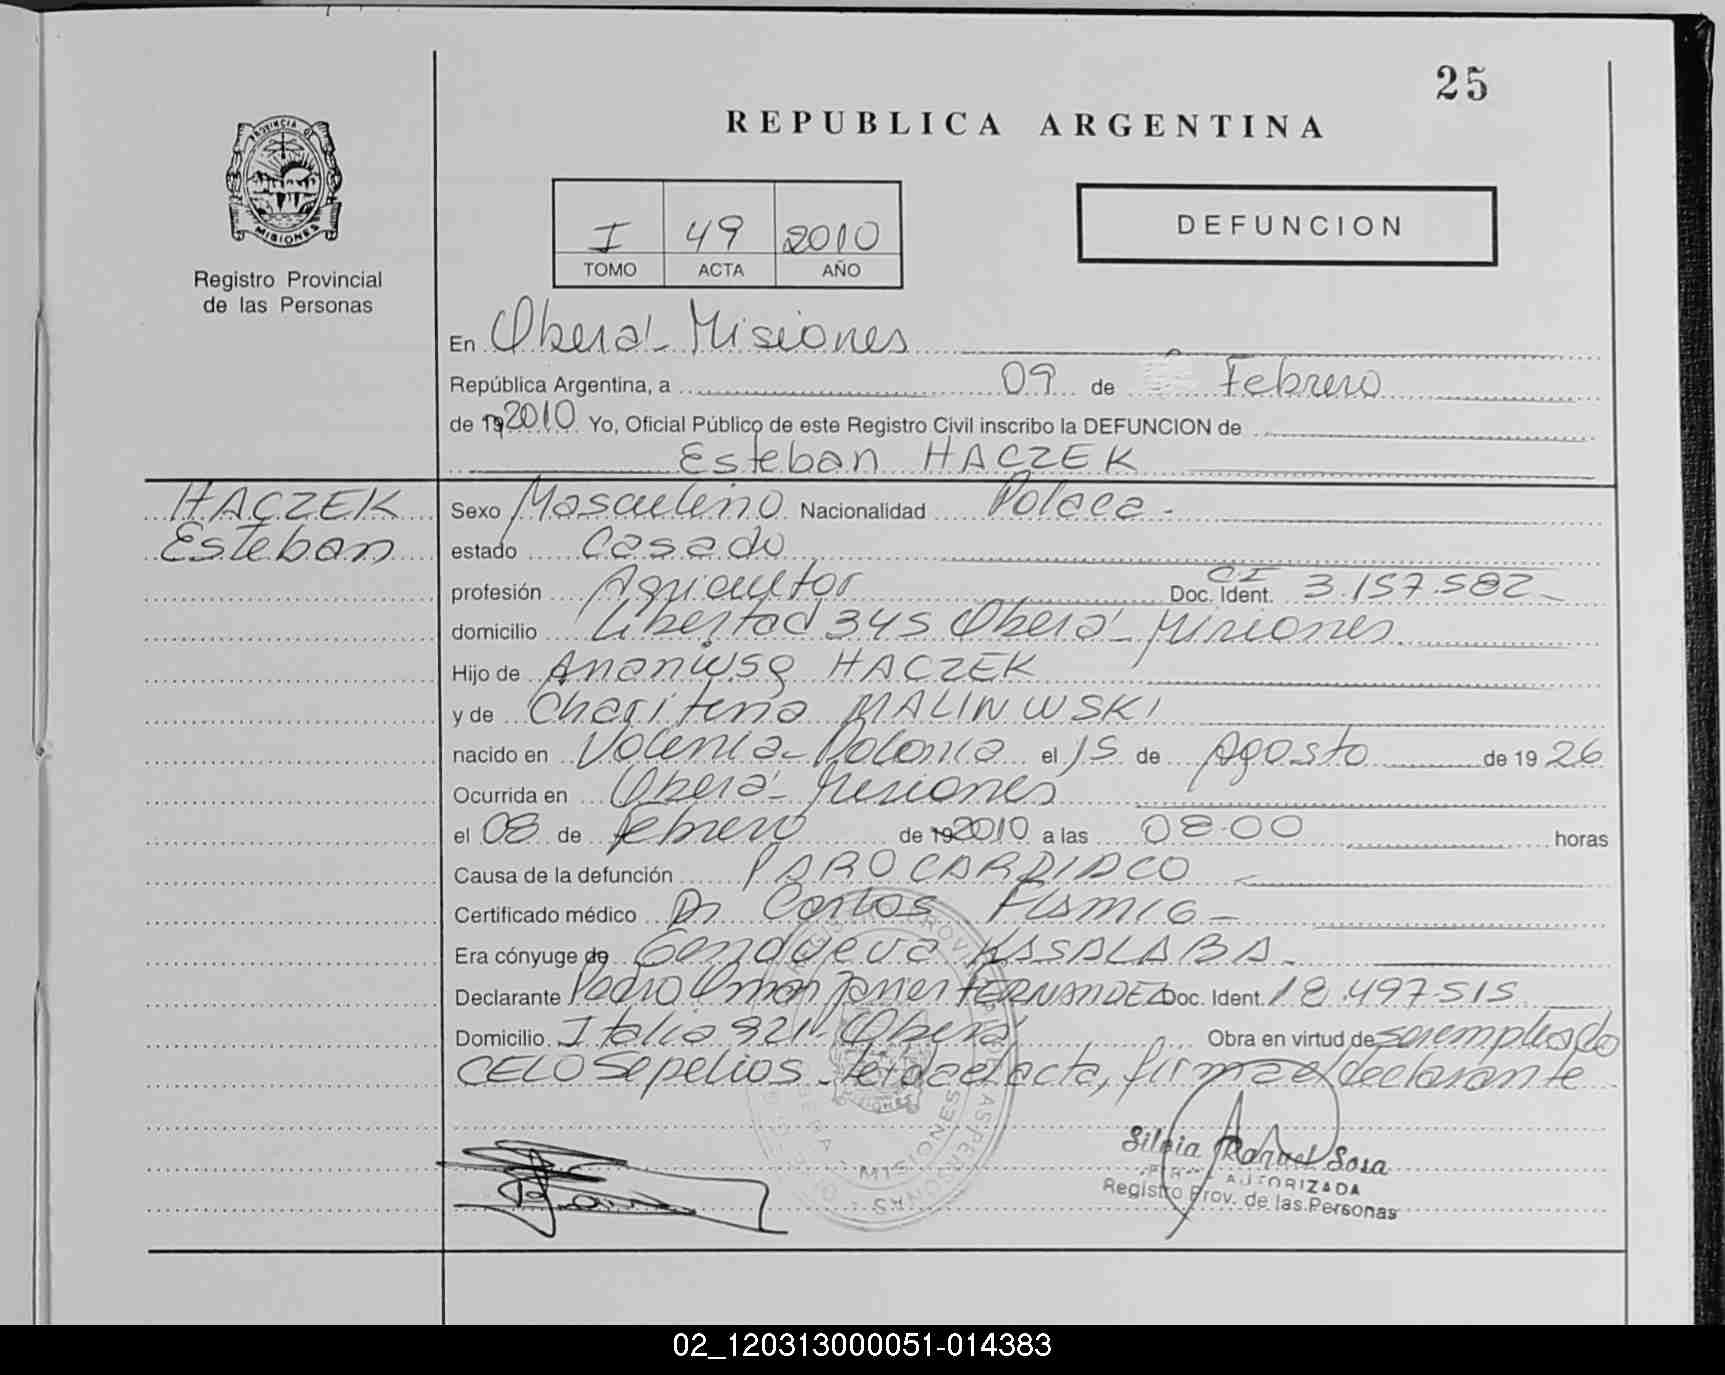 25
REPUBLICA ARGENTINA
PROVINCIA DE
MISIONES
Registro Provincial
de las Personas
I 49 2010
TOMO ACTA AÑO
DEFUNCION
En Oberá - Misiones
República Argentina, a 09 de Febrero
de 19 2010 Yo, Oficial Público de este Registro Civil inscribo la DEFUNCION de
Esteban HACZEK
HACZEK
Esteban
Sexo Masculino Nacionalidad Polaca -
estado Casado
profesión Agricultor Doc. Ident. CI 3.157.582 -
domicilio Libertad 345 Oberá - Misiones
Hijo de HACZEK
y de Charitena MALINWSKI
nacido en Volenia - Polonia el 15 de Agosto de 19 26
Ocurrida en Oberá - Misiones
el 08 de febrero de 19 2010 a las 08.00 horas
Causa de la defunción PARO CARDIACO
Certificado médico Dr Carlos -
Era cónyuge de KASALABA -
Declarante Pedro Omar Javier FERNANDEZ Doc. Ident. 18.497515
Domicilio Italia 921 - Oberá Obra en virtud de ser empleado
CELO Sepelios - leida el acta, firma el declarante
MISIONES
Silvia Raquel Sosa
AUTORIZADA
Registro Prov. de las Personas
02_120313000051-014383